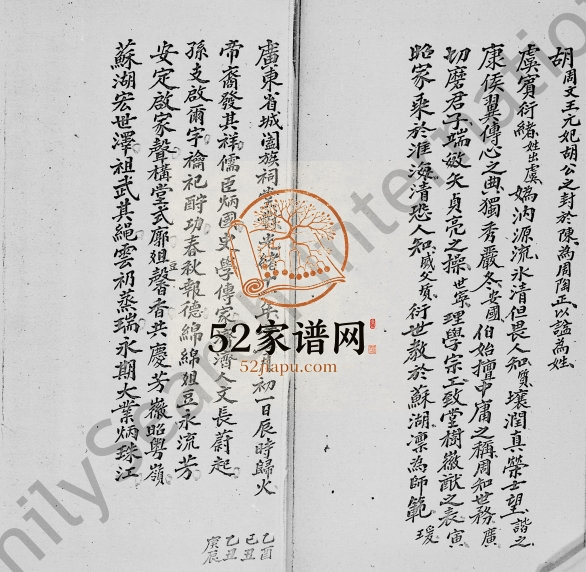 胡周文王元妃胡公之封於陳為周陶正以謚為姓
虞賓衍緒姓出虞媯汭源流氷清但畏人知質壤潤真榮士望諧之
康侯翼傳心之典獨秀嚴冬安國伯始擅中庸之稱周知世務廣
切磨君子端敏矢貞亮之操世寧理學宗工致堂樹徽猷之表寅
昭家乘於淮海清恐人知威父質衍世教於蘇湖凛為師範瑗
廣東省城闔族祠 對光緒 年 初一日辰時歸火
帝裔發其祥儒臣炳國史學傳家 濟人文長蔚起
孫支啟爾宇禴祀酧功春秋報德綿綿俎豆永流芳
安定啟家聲構堂式廓俎豆馨香共慶芳徽昭粵嶺
蘇湖宏世澤祖武其繩雲礽蒸瑞永期大業炳珠江
乙酉
己丑
乙丑
庚辰
52家谱网
52jiapu.com
FamilySearch International